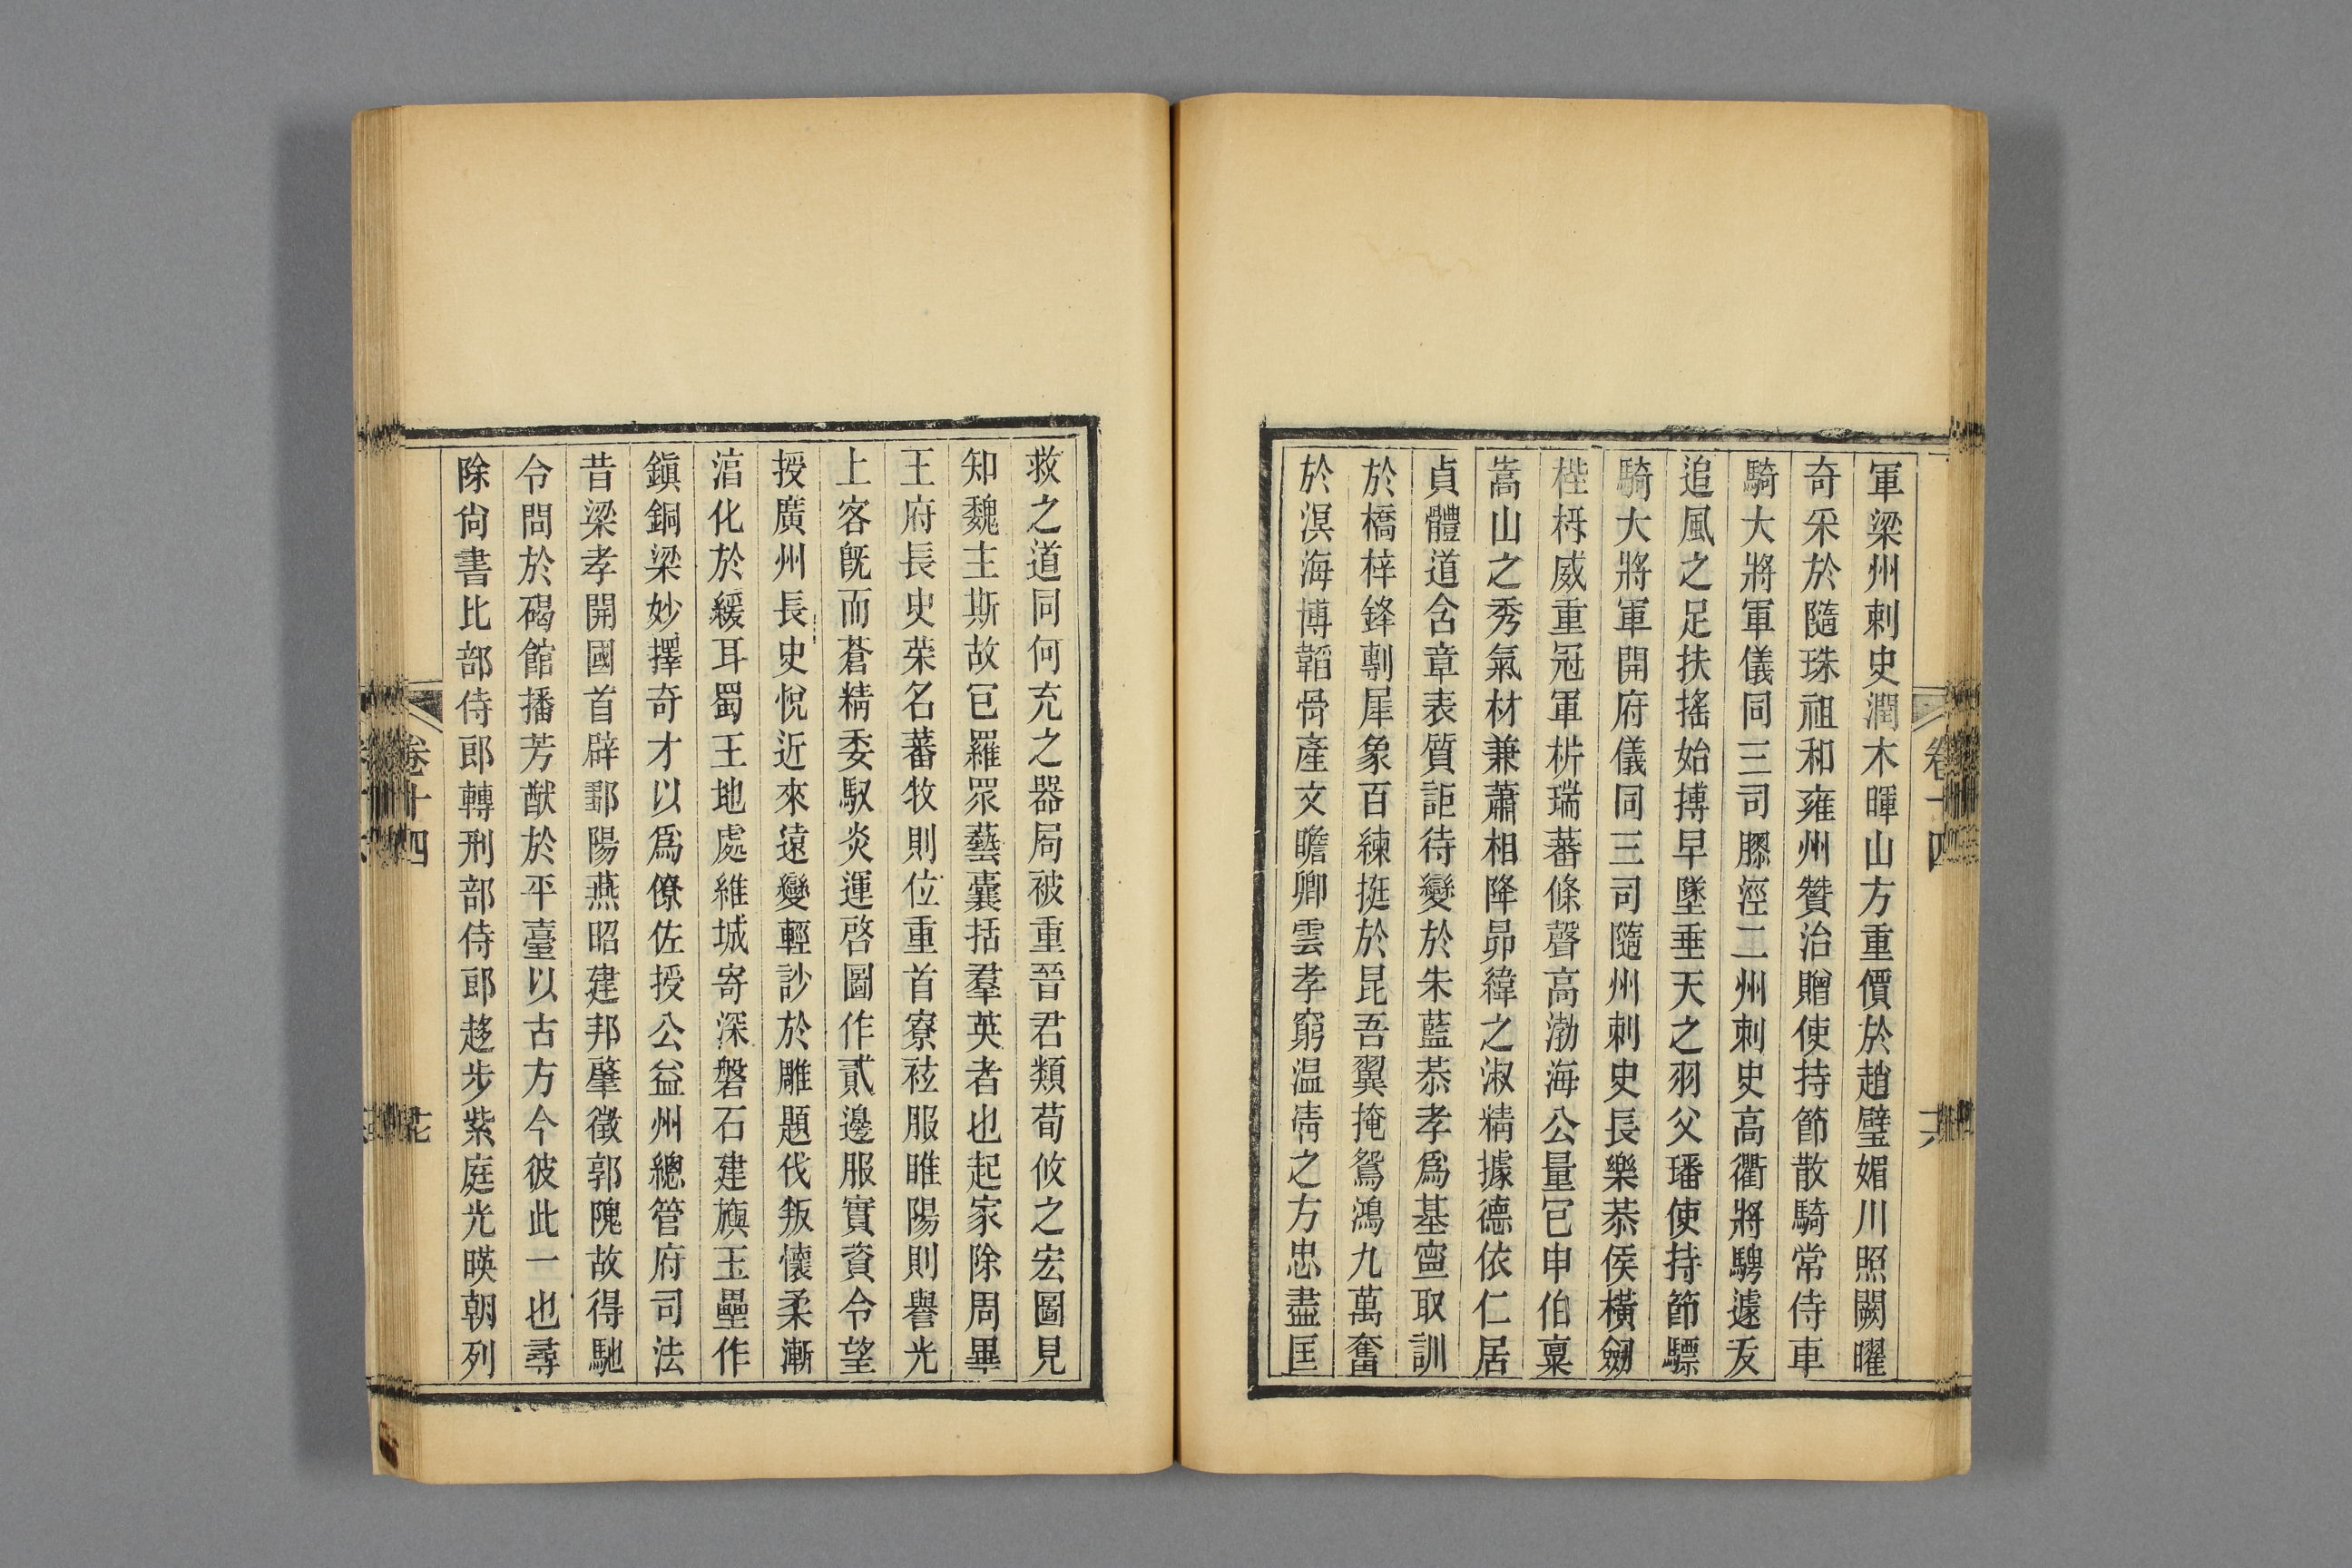 軍梁州刺史潤木暉山方重價於趙璧媚川照闕曜
奇采於隨珠祖和雍州贊治贈使持節散騎常侍車
騎大將軍儀同三司膠涇二州刺史高衢將騁遽友
追風之足扶搖始搏早墜垂天之羽父璠使持節驃
騎大將軍開府儀同三司隨州刺史長樂恭侯橫劒
桎栘威重冠軍析瑞蕃條聲高渤海公量包申伯稟
嵩山之秀氣材兼蕭相降昴緯之淑精據德依仁居
貞體道含章表質詎待變於朱藍恭孝爲基寧取訓
於橋梓鋒剸犀象百練挺於昆吾翼掩鴛鴻九萬奮
於溟海博韜骨產文瞻卿雲孝窮温凊之方忠盡匡
救之道同何充之器局被重晉君類荀攸之宏圖見
知魏主斯故包羅眾藝囊括羣英者也起家除周畢
王府長史荣名蕃牧則位重首寮袨服睢陽則譽光
上客旣而蒼精委馭炎運啓圖作貳邊服實資令望
授廣州長史悅近來遠變輕訬於雕題伐叛懷柔漸
淯化於緩耳蜀王地處維城寄深磐石建旟玉壘作
鎭銅梁妙擇奇才以爲僚佐授公益州總管府司法
昔梁孝開國首辟鄒陽燕昭建邦肇徵郭隗故得馳
令問於碣館播芳猷於平臺以古方今彼此一也尋
除尙書比部侍郎轉刑部侍郎趍步紫庭光暎朝列
卷十四